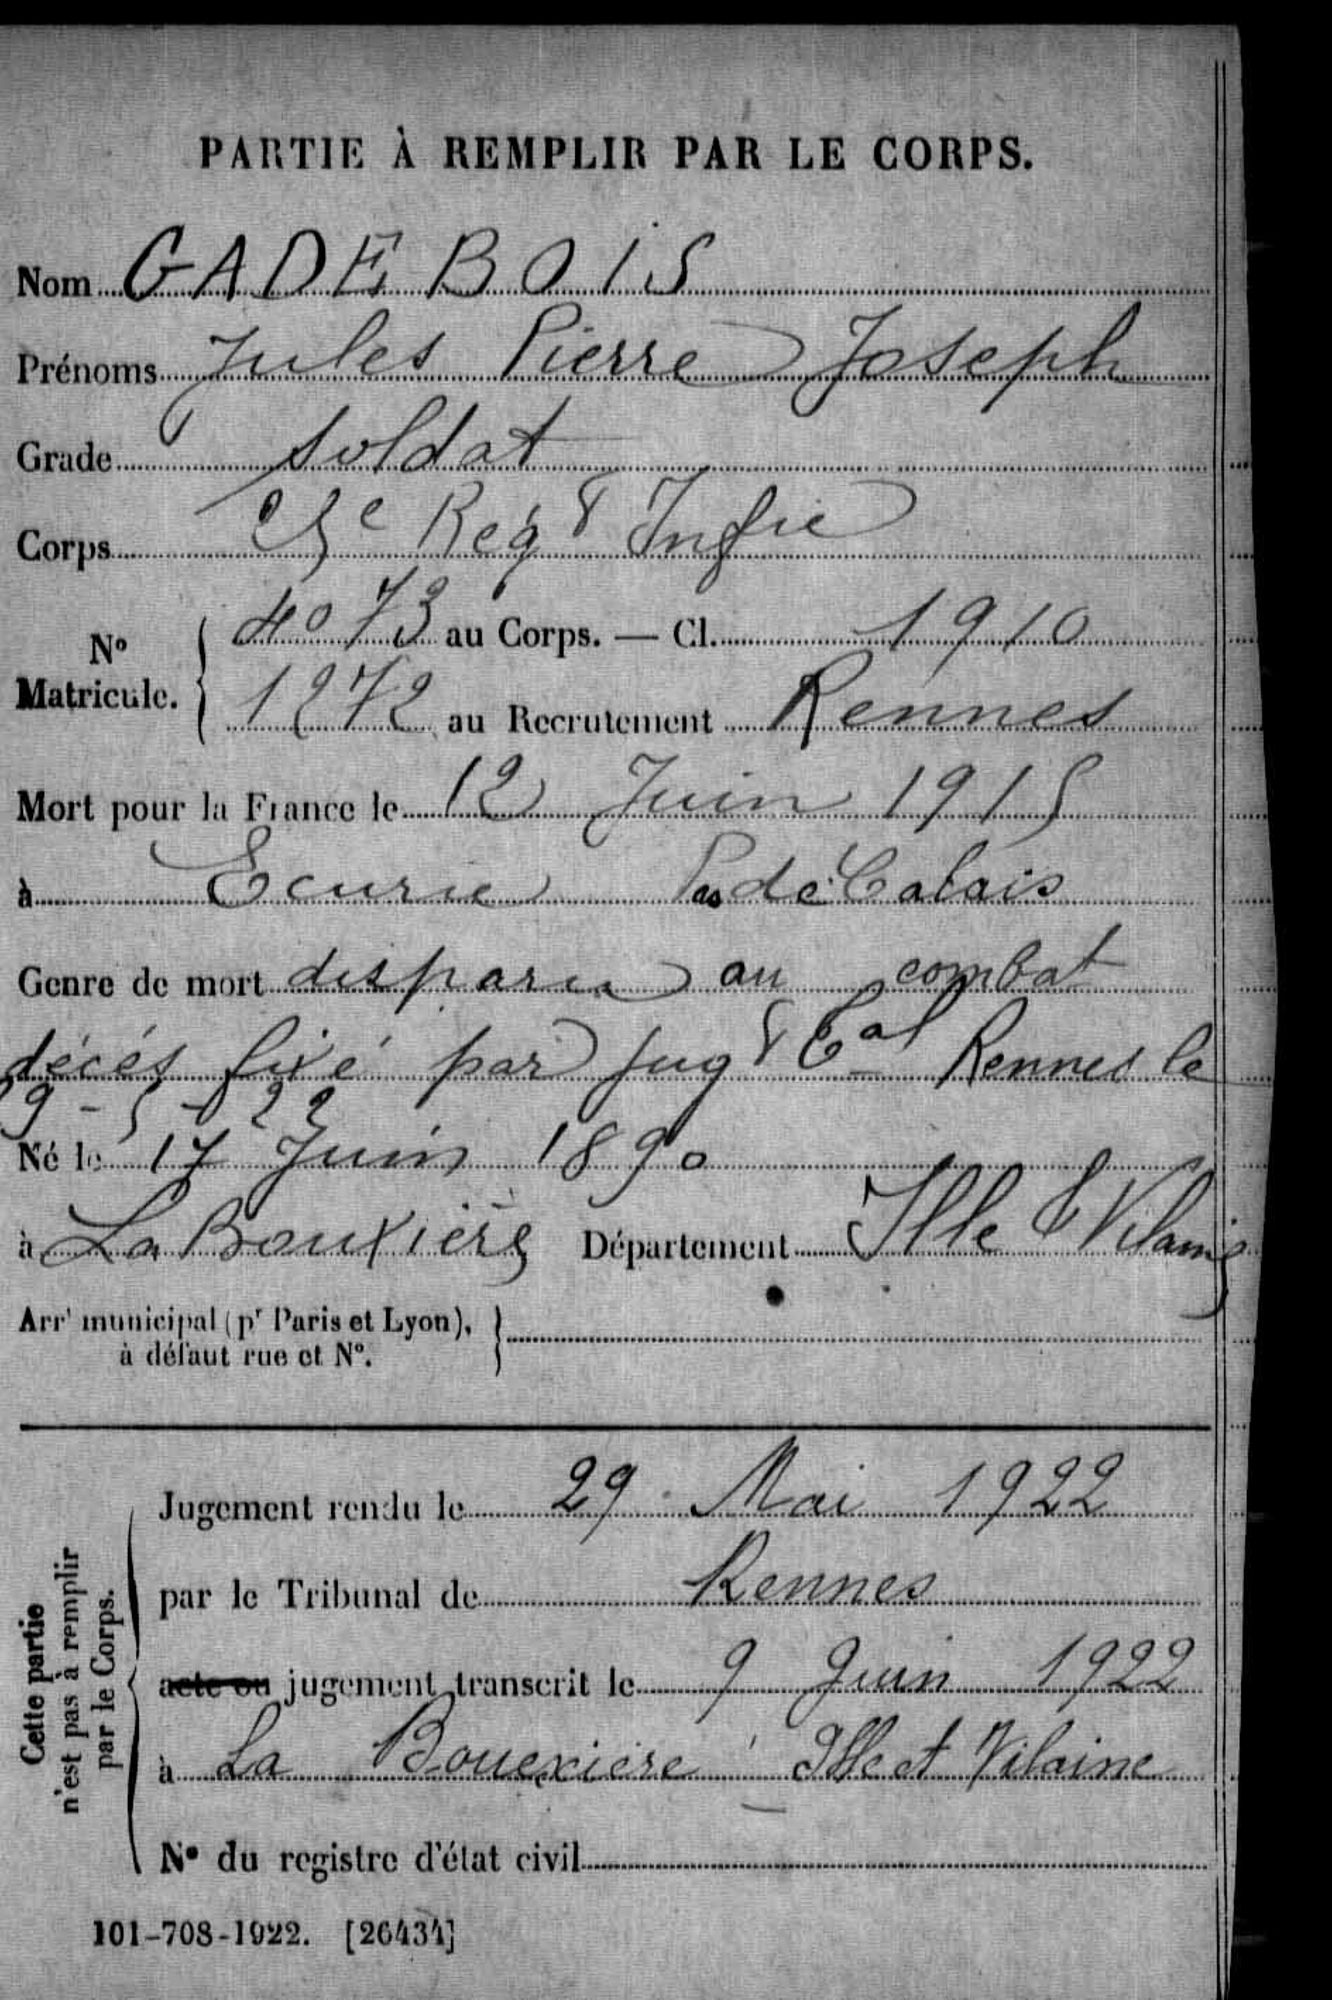 PARTIE À REMPLIR PAR LE CORPS.
Nom GADEBOIS
Prénoms Jules Pierre Joseph
Grade soldat
Corps 25e Regt Infie
No Matricule. 4073 au Corps. — Cl. 1910
1272 au Recrutement Rennes
Mort pour la France le 12 Juin 1915
à Ecurie Pas de Calais
Genre de mort disparu au combat
décés fixé par jugt Cal Rennes le
29-5-22
Né le 17 Juin 1890
à La Bouxière Département Ille & Vilaine
Arrt municipal (pr Paris et Lyon), à défaut rue et No.
Cette partie n'est pas à remplir par le Corps.
Jugement rendu le 29 Mai 1922
par le Tribunal de Rennes
acte ou jugement transcrit le 9 Juin 1922
à La Bouexière Ille et Vilaine
No du registre d'état civil
101-708-1922. [26434]